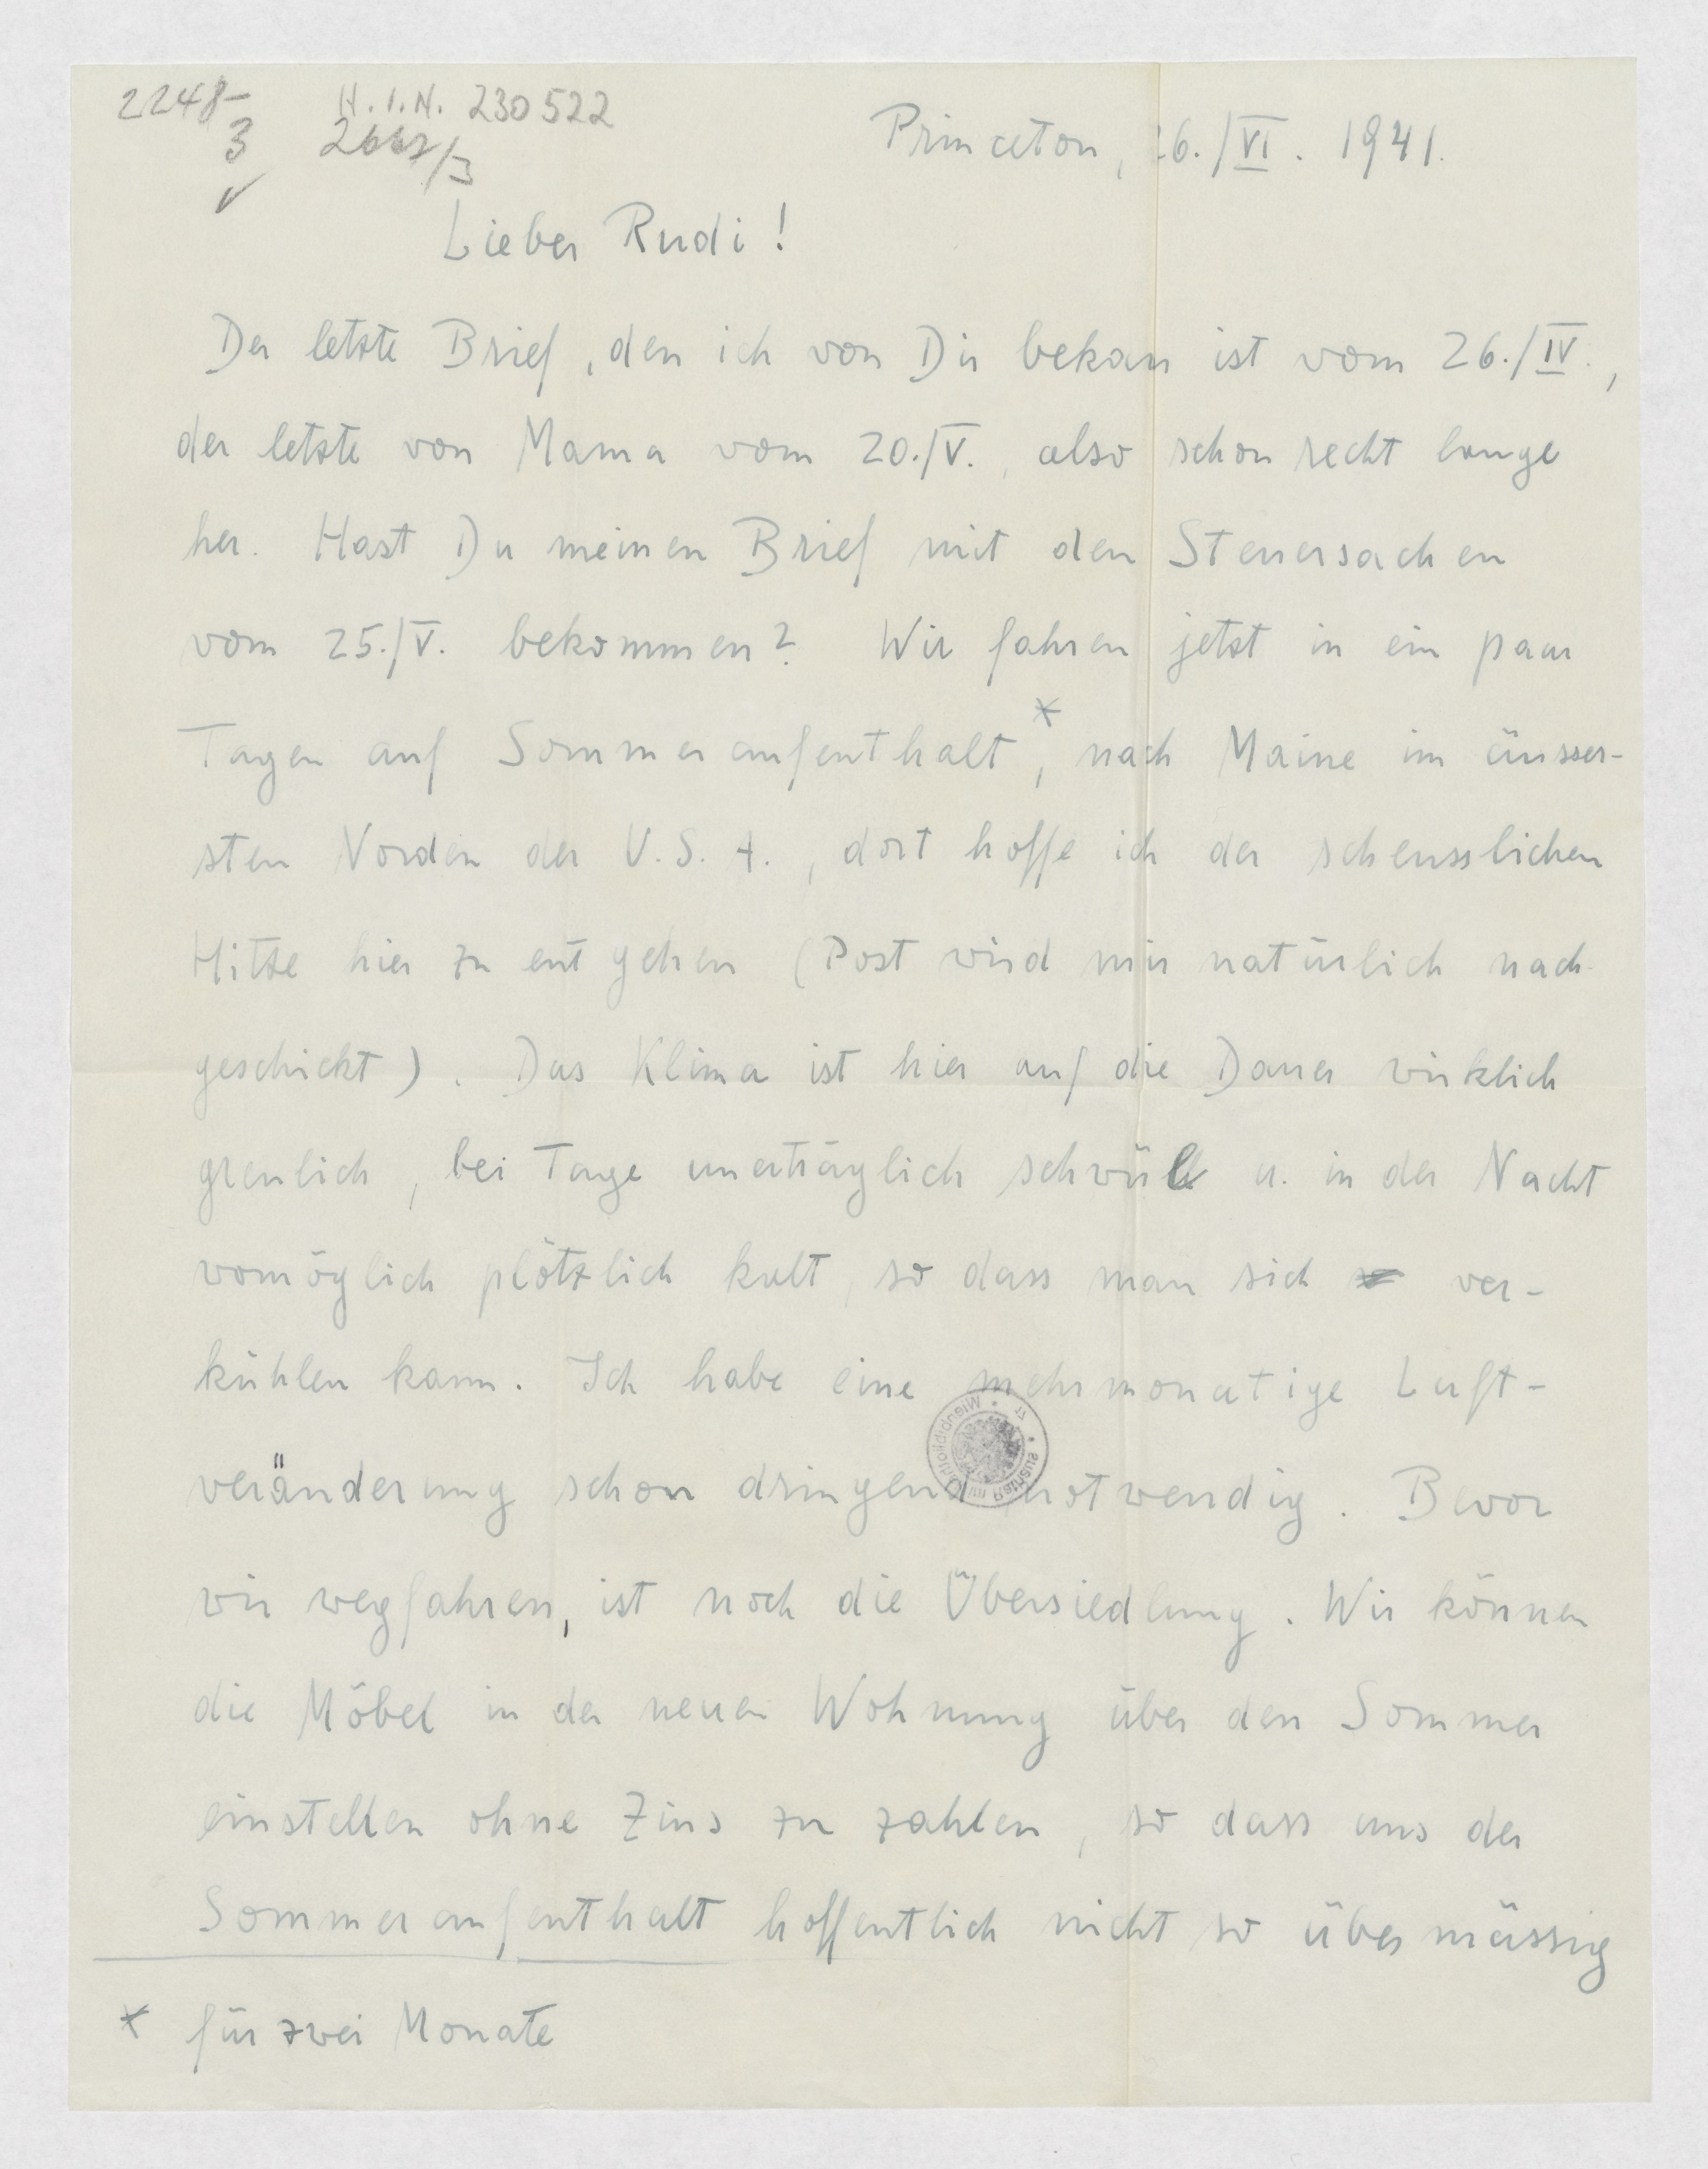 2248-
3
H.I.N. 230522
Princeton, 26./VI. 1941.
Lieber Rudi!
Der letzte Brief, den ich von Dir bekam ist vom 26./IV.,
der letzte von Mama vom 20./V., also schon recht lange
her. Hast Du meinen Brief mit den Steuersachen
vom 25./V. bekommen? Wir fahren jetzt in ein paar
Tagen auf Sommeraufenthalt*, nach Maine im äusser-
sten Norden der U.S.A., dort hoffe ich der scheusslichen
Hitze hier zu entgehen (Post wird mir natürlich nach-
geschickt). Das Klima ist hier auf die Dauer wirklich
greulich, bei Tage unerträglich schwül u. in der Nacht
womöglich plötzlich kalt, so dass man sich ver-
kühlen kann. Ich habe eine mehrmonatige Luft-
veränderung schon dringend notwendig. Bevor
wir wegfahren, ist noch die Übersiedlung. Wir können
die Möbel in der neuen Wohnung über den Sommer
einstellen ohne Zins zu zahlen, so dass uns der
Sommeraufenthalt hoffentlich nicht so übermässig
* für zwei Monate